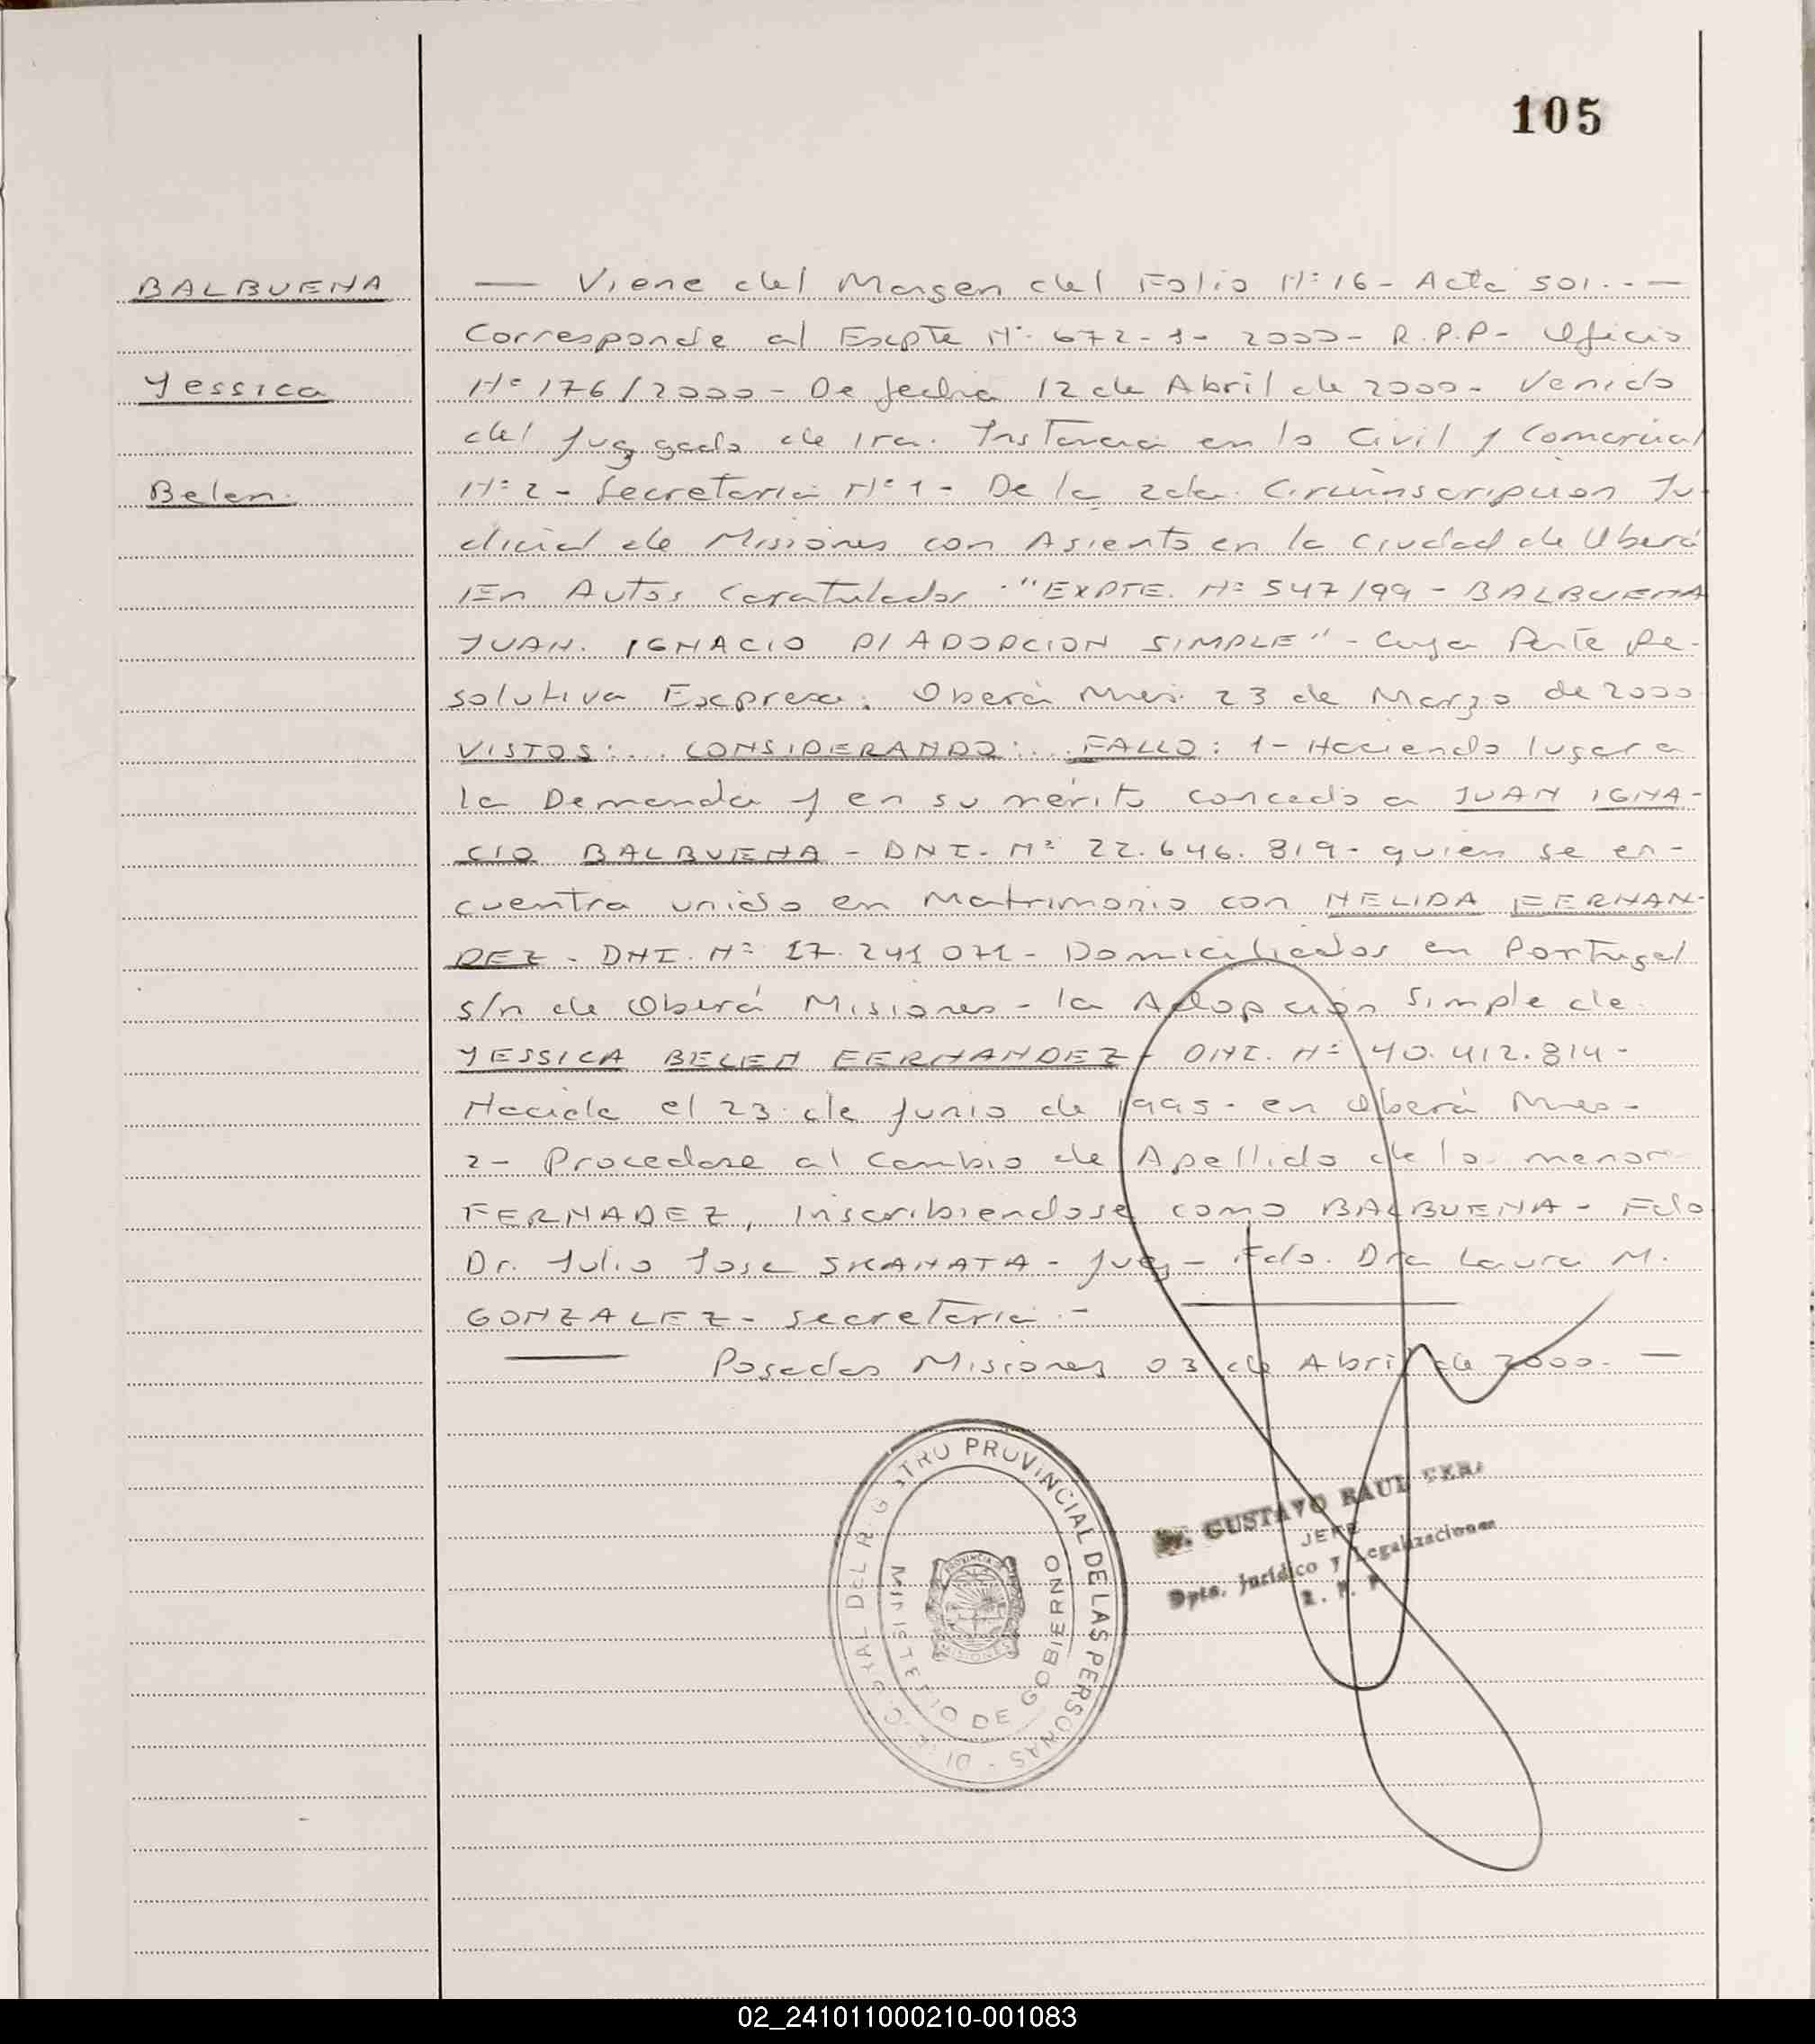 105
BALBUENA
Yessica
Belen.
— Viene del Margen del Folio Nº 16 - Acta 501.-.—
Corresponde al Expte Nº 672-1- 2000- R.P.P- Oficio
Nº 176/2000 - De fecha 12 de Abril de 2000- Venido
del Juzgado de 1ra. Instancia en lo Civil y Comercial
Nº 2 - Secretaria Nº 1 - De la 2da. Circuinscripcion Ju-
dicial de Misiones con Asiento en la Ciudad de Oberá
En Autos Caratulados "EXPTE. Nº 547/99 - BALBUENA
JUAN. IGNACIO P/ ADOPCION SIMPLE" - Cuya Parte Re-
solutiva Expresa: Oberá Mnes. 23 de Marzo de 2000
VISTOS:... CONSIDERANDO:... FALLO: 1- Haciendo lugar a
la Demanda y en su mérito concedo a JUAN IGNA-
CIO BALBUENA - DNI. Nº 22.646.819- quien se en-
cuentra unido en Matrimonio con NELIDA FERNAN-
DEZ - DNI. Nº 17.241 071 - Domiciliados en Portugal
s/n de Oberá Misiones - la Adopción Simple de
YESSICA BELEN FERNANDEZ - DNI. Nº 40.412.814-
Nacida el 23 de Junio de 1995- en Oberá Mnes-
2- Procedase al Cambio de Apellido de la menor
FERNADEZ, Inscribiendose como BALBUENA - Fdo
Dr. Julio Jose SKANATA - Juez - Fdo. Dra Laura M.
GONZALEZ - Secretaria.-
— Posadas Misiones 03 de Abril de 2000. —
PROVINCIAL DE LAS PERSONAS
MINISTERIO DE GOBIERNO
Dr. GUSTAVO RAUL
JEFE
Dpto. Jurídico y Legalizaciones
R. P. P
02_241011000210-001083